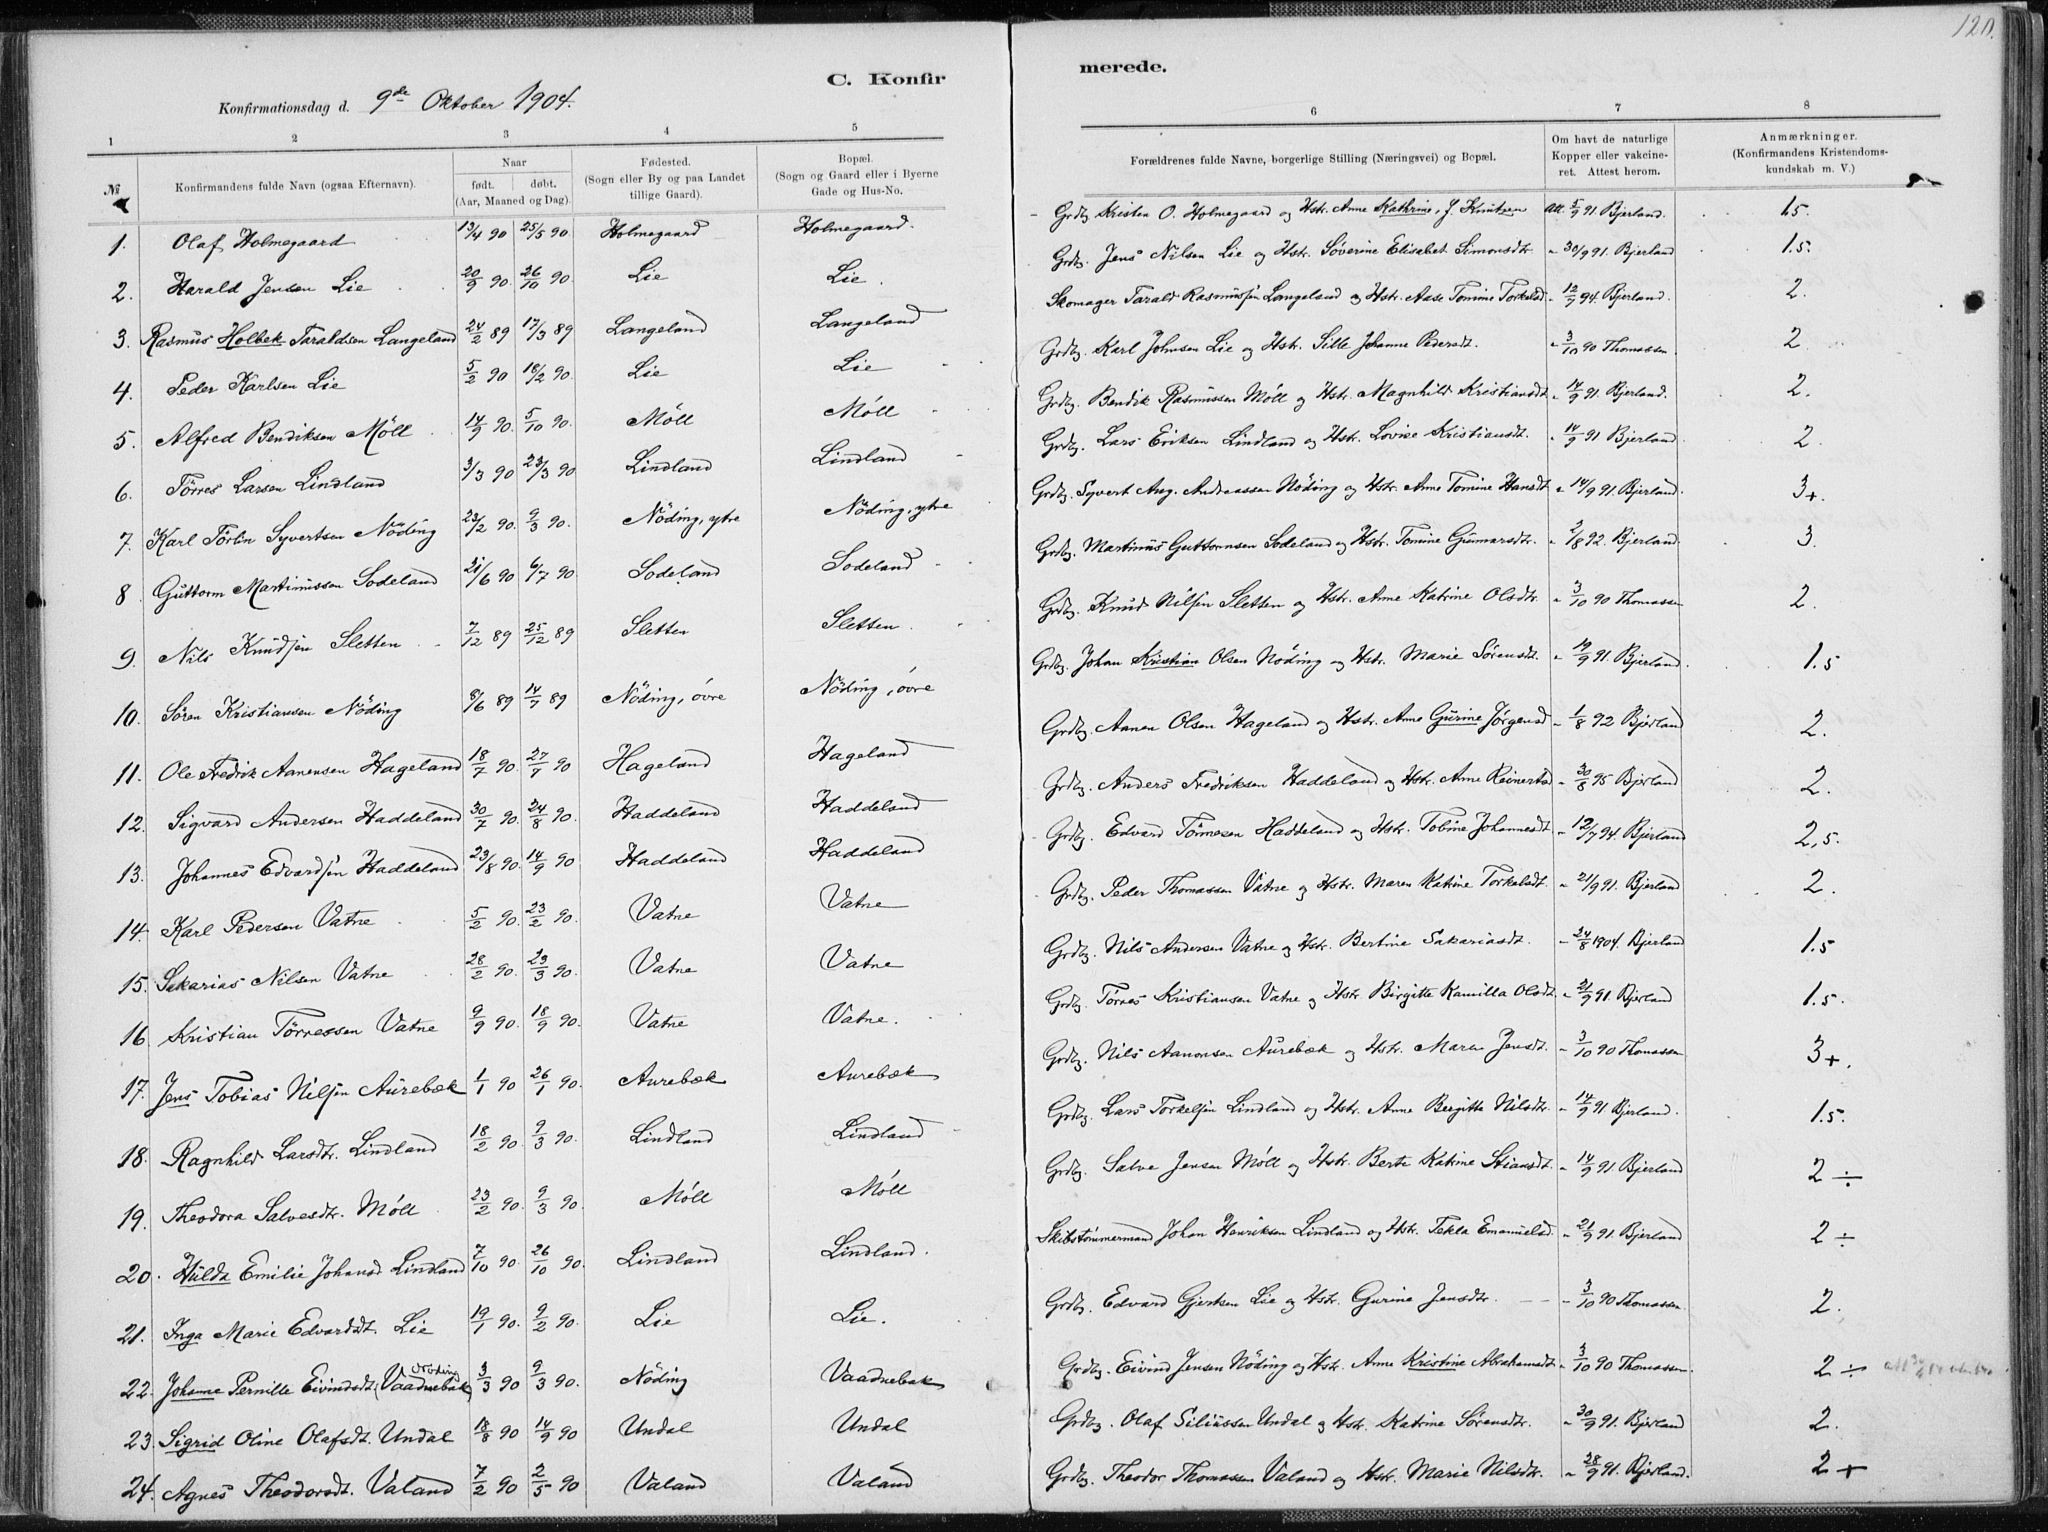 120.
C. Konfir
merede.
Konfirmationsdag d. 9de Oktober 1904.
1 2 3 4 5 6 7 8
№ Konfirmandens fulde Navn (ogsaa Efternavn). Naar født. døbt. (Aar, Maaned og Dag). Fødested. (Sogn eller By og paa Landet tillige Gaard). Bopæl. (Sogn og Gaard eller i Byerne Gade og Hus-No. Forældrenes fulde Navne, borgerlige Stilling (Næringsvei) og Bopæl. Om havt de naturlige Kopper eller vakcineret. Attest herom. Anmærkninger. (Konfirmandens Kristendomskundskab m. V.)
1. Olaf Holmegaard 13/4 90 25/5 90 Holmegaard Holmegaard. Grdbg. Kristen O. Holmegaard og Hstr. Anne Kathrine, f. Knutsen Att. 5/9 91 Bjerland. 1.5
2. Harald Jensen Lie 20/9 90 26/10 90 Lie Lie. Grdbg. Jens Nilsen Lie og Hstr. Söverine Elisabet Simonsdtr. " 30/9 91. Bjerland 1.5.
3. Rasmus Holbek Taraldsen Langeland 24/2 89 17/3 89 Langeland Langeland Skomager Tarald Rasmussen Langeland og Hstr. Aase Tomine Torkelsd. " 12/7 94. Bjerland. 2.
4. Peder Karlsen Lie 5/2 90 16/2 90. Lie Lie Grdbg. Karl Johnsen Lie og Hstr. Sille Johanne Pedersdt. " 3/10 90 Thomassen 2.
5. Alfred Bendiksen Möll 14/9 90. 5/10 90. Möll Möll Grdbg. Bendik Rasmussen Möll og Hstr. Magnhild Kristiansdt. " 14/9 91. Bjerland. 2.
6. Törres Larsen Lindland 3/3 90 23/3 90 Lindland Lindland Grdbg. Lars Eriksen Lindland og Hstr. Lovise Kristiansdt. " 14/9 91 Bjerland. 2.
7. Karl Törlin Syvertsen Nöding 23/2 90. 9/3 90. Nöding, ytre Nöding, ytre Grdbg. Syvert Aug. Andreassen Nöding og Hstr. Anne Tomine Hansdt " 14/9 91. Bjerland. 3+.
8 Guttorm Martinussen Sodeland 21/6 90 6/7 90 Sodeland Sodeland Grdbg. Martinus Guttormsen Sodeland og Hstr. Tomine Gunnarsdtr. " 2/8 92. Bjerland. 3.
9. Nils Knudsen Sletten 7/12 89 25/12 89 Sletten Sletten. Grdbg. Knud Nilsen Sletten og Hstr. Anne Katrine Olsdtr. " 3/10 90 Thomassen 2.
10. Sören Kristiansen Nöding 8/6 89 14/7 89 Nöding, övre Nöding, övre Grdbg. Johan Kristian Olsen Nöding og Hstr. Marie Sörensdt. " 19/9 91. Bjerland. 1.5
11. Ole Fredrik Aanensen Hageland 18/7 90. 27/7 90 Hageland Hageland Grdbg. Aanen Olsen Hageland og Hstr. Anne Gurine Jörgensd. " 1/8 92 Bjerland 2.
12. Sigvard Andersen Haddeland 30/7 90. 24/8 90. Haddeland Haddeland Grdbg. Anders Fredriksen Haddeland og Hstr. Anne Reinertsd " 30/8 95 Bjerland 2.
13. Johannes Edvardsen Haddeland 23/8 90. 14/9 90 Haddeland Haddeland Grdbg. Edvard Tönnesen Haddeland og Hstr. Tobine Johannesdt. " 12/7 94. Bjerland 2,5.
14. Karl Pedersen Vatne 5/2 90. 23/2 90. Vatne Vatne Grdbg. Peder Thomassen Vatne og Hstr. Maren Katrine Torkelsdt. " 21/9 91. Bjerland 2.
15. Sakarias Nilsen Vatne 28/2 90. 23/3 90. Vatne Vatne Grdbg. Nils Andersen Vatne og Hstr. Bertine Sakariasdt. " 24/8 1904. Bjerland 1.5
16. Kristian Törressen Vatne 9/9 90. 18/9 90. Vatne Vatne. Grdbg. Törres Kristiansen Vatne og Hstr. Birgitte Kamilla Olsdt. " 21/9 91. Bjerland 1.5.
17. Jens Tobias Nilsen Aurebæk 1/1 90 26/1 90. Aurebæk Aurebæk Grdbg. Nils Aanonsen Aurebæk og Hstr. Maren Jensdt. " 3/10 90 Thomassen 3+.
18. Ragnhild Larsdtr. Lindland 18/2 90. 9/3 90. Lindland Lindland Grdbg. Lars Torkelsen Lindland og Hstr. Anne Bergitte Nilsdtr. " 14/9 91 Bjerland. 1.5.
19. Theodora Salvesdtr. Möll 23/2 90. 9/3 90. Möll Möll Grdbg. Salve Jensen Möll og Hstr. Berte Katrine Stiansdt. " 14/9 91. Bjerland 2 ÷
20. Hulda Emilie Johansd Lindland 7/10 90. 26/10 90. Lindland Lindland. Skibstömmermand Johan Henriksen Lindland og Hstr. Tekla Emanuelsd. " 21/9 91. Bjerland 2 ÷
21. Inga Marie Edvardsdt. Lie 19/1 90. 9/2 90. Lie Lie. Grdbg. Edvard Gjertsen Lie og Hstr. Gurine Jensdtr. " 3/10 90 Thomassen. 2.
22. Johanne Pernille Eivindsdt. (Vaadnebæk) Nöding 3/3 90 9/3 90. Nöding Vaadnebæk Grdbg. Eivind Jensen Nöding og Hstr. Anne Kristine Abrahamsdt " 3/10 90 Thomassen. 2 ÷
23. Sigrid Oline Olafsdt. Undal 18/8 90 14/9 90 Undal Undal Grdbg. Olaf Siliussen Undal og Hstr. Katrine Sörensdtr. " 30/9 91. Bjerland 2.
24. Agnes Theodorsdt. Valand 7/2 90 2/5 90 Valand Valand Grdbg. Theodor Thomassen Valand og Hstr. Marie Nilsdtr. " 28/9 91. Bjerland. 2 +